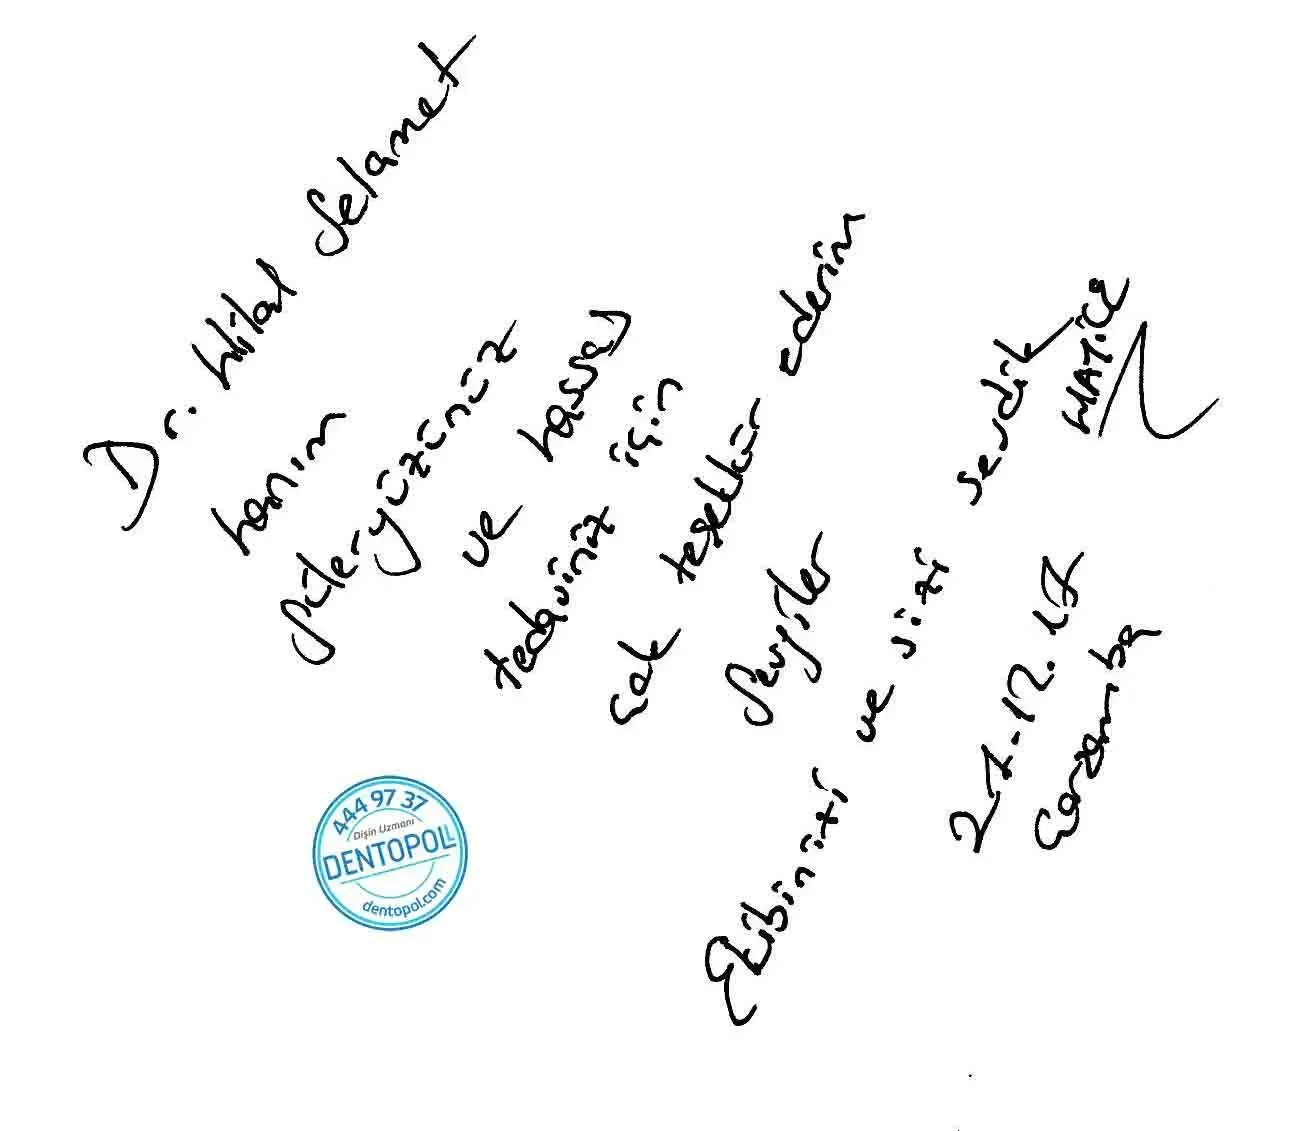 Dr. Hilal Selamet
hanım
güleryüzünüz
ve hassas
tedaviniz için
çok teşekkür ederim
Sevgiler
Ekibinizi ve sizi sevdik
HATİCE
27.12.17
Çarşamba
444 97 37
Dişin Uzmanı
DENTOPOLL
dentopol.com